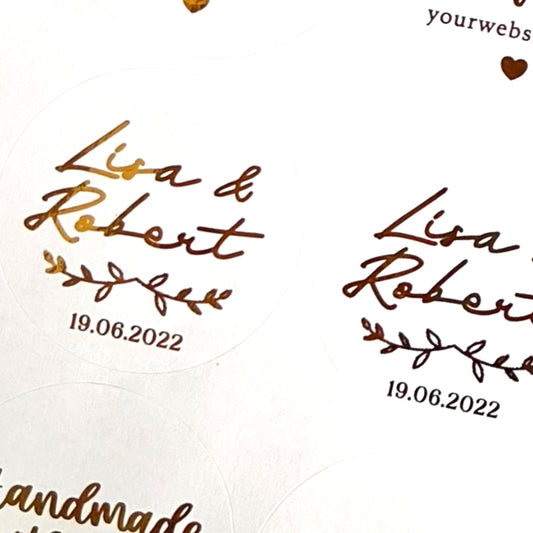 yourwebs
Lisa &
Robert
19.06.2022
Lisa
Robert
19.06.2022
Handmade